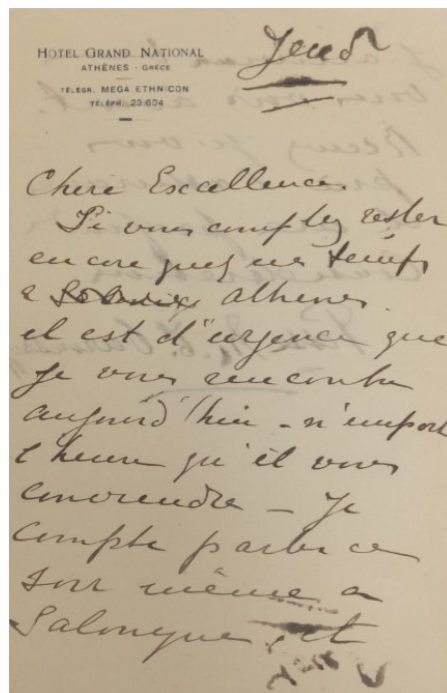 HOTEL GRAND NATIONAL
ATHÈNES - GRÈCE
TÉLÉGR. MEGA ETHNICON
TÉLÉPH. 23.604
Jeudi
Chere Excellence.
Si vous comptez rester
encore quelques temps
a athenes
il est d'urgence que
je vous rencontre
aujourd'hui - n'import
l'heure qu'il vous
conviendra - Je
compte partir ce
soir même a
Salonique, et